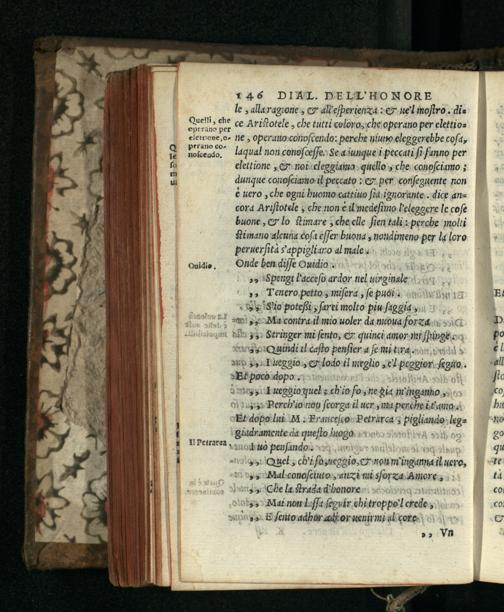 146 DIAL. DELL'HONORE
le, alla ragione, & all'esperienza: & ve'l mostro. di-
Quelli, che
operano per
elettione, o-
perano co-
noscendo.
ce Aristotele, che tutti coloro, che operano per elettio-
ne, operano conoscendo: perche niuno eleggerebbe cosa,
laqual non conoscesse. Se adunque i peccati si fanno per
elettione, & noi eleggiamo quello, che conosciamo;
dunque conosciamo il peccato: & per conseguente non
è uero, che ogni huomo cattiuo sia ignorante. dice an-
cora Aristotele, che non è il medesimo l'eleggere le cose
buone, & lo stimare, che elle sien tali: perche molti
stimano alcuna cosa esser buona, nondimeno per la loro
peruersità s'appigliano al male.
Ouidio.
Onde ben disse Ouidio.
,, Spengi l'acceso ardor nel uirginale
,, Tenero petto, misera, se puoi.
,, S'io potessi, sarei molto piu saggia,
,, Ma contra il mio uoler da nuoua forza
,, Stringer mi sento, & quinci amor mi spinge.
,, Quindi il casto pensier a se mi tira.
,, I ueggio, & lodo il meglio, e'l peggior seguo.
Et poco dopo.
,, I ueggio quel; ch'io so, ne già m'inganno,
,, Perch'io non scorga il uer, ma perche i t'amo.
Et dopo lui M. Francesco Petrarca, pigliando leg-
giadramente da questo luogo
Il Petrarca
I uò pensando.
,, Quel, ch'i so, ueggio, & non m'inganna il uero,
,, Mal conosciuto, anzi mi sforza Amore,
,, Che la strada d'honore
,, Mai non lassa seguir chi troppo'l crede,
,, E sento adhor adhor uenirmi al core
,, Vn